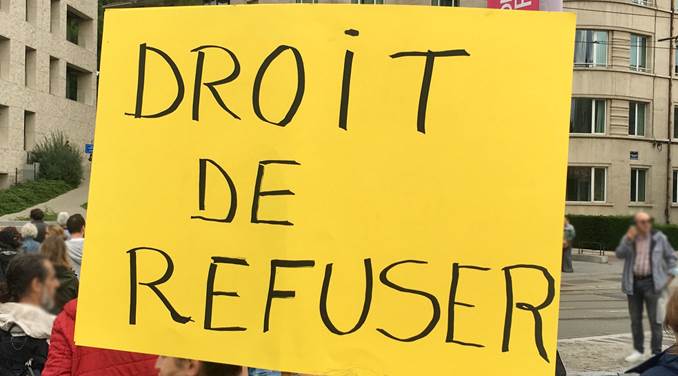 DROiT
DE
REFUSER